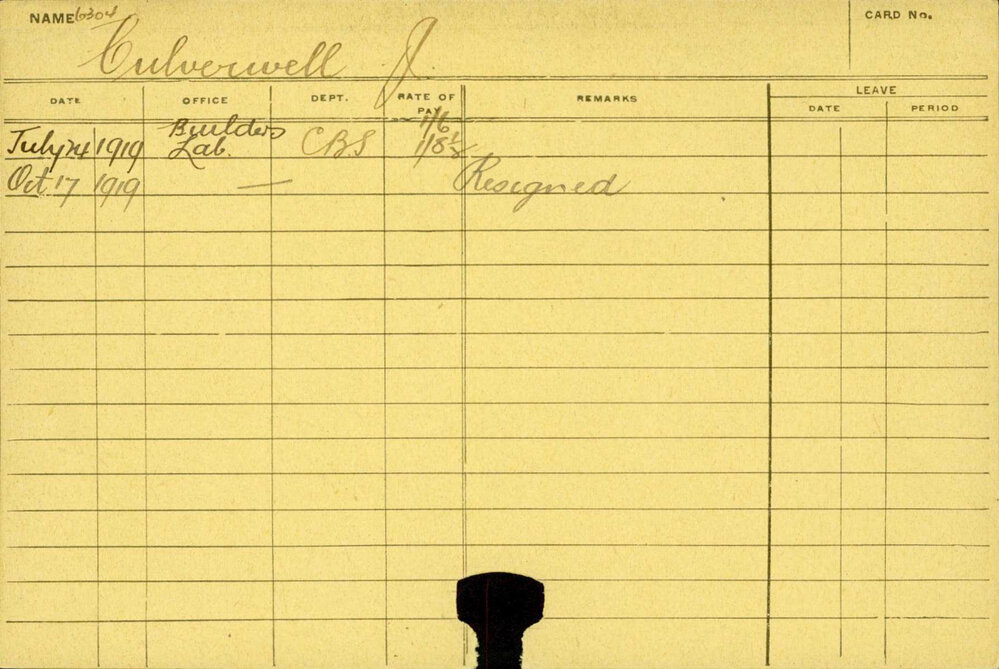 NAME 6304 CARD No.
Culverwell J.
DATE OFFICE DEPT. RATE OF PAY REMARKS LEAVE
DATE PERIOD
Builders 1/6
July 24 1919 Lab. CBS 1/8½
Oct 17 1919 — Resigned